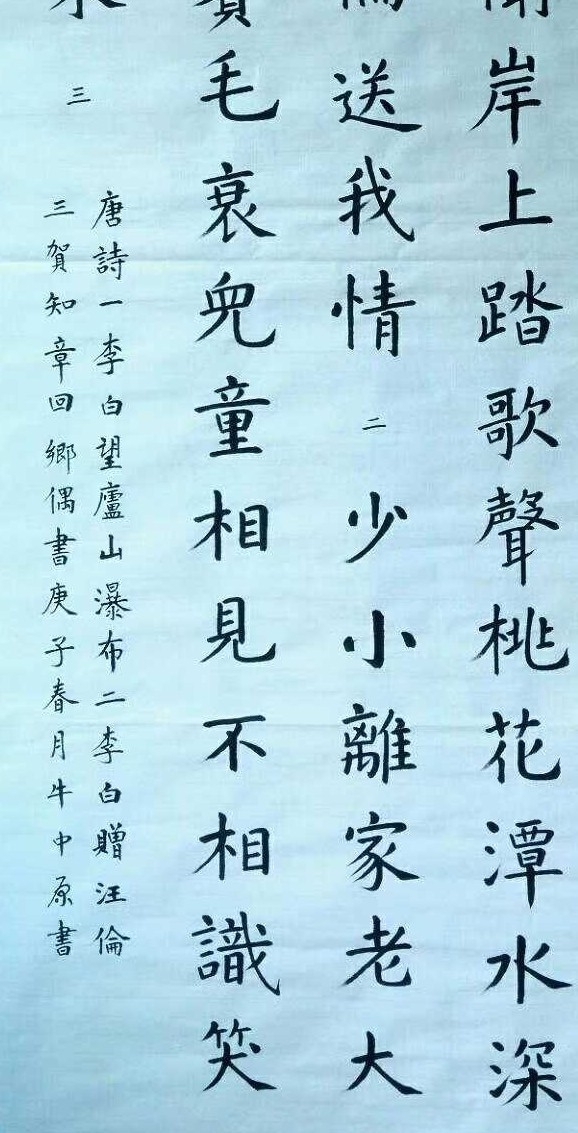 岸上踏歌聲桃花潭水深
送我情二少小離家老大
毛衰兒童相見不相識笑
三
唐詩一李白望廬山瀑布二李白贈汪倫
三賀知章回鄉偶書庚子春月牛中原書